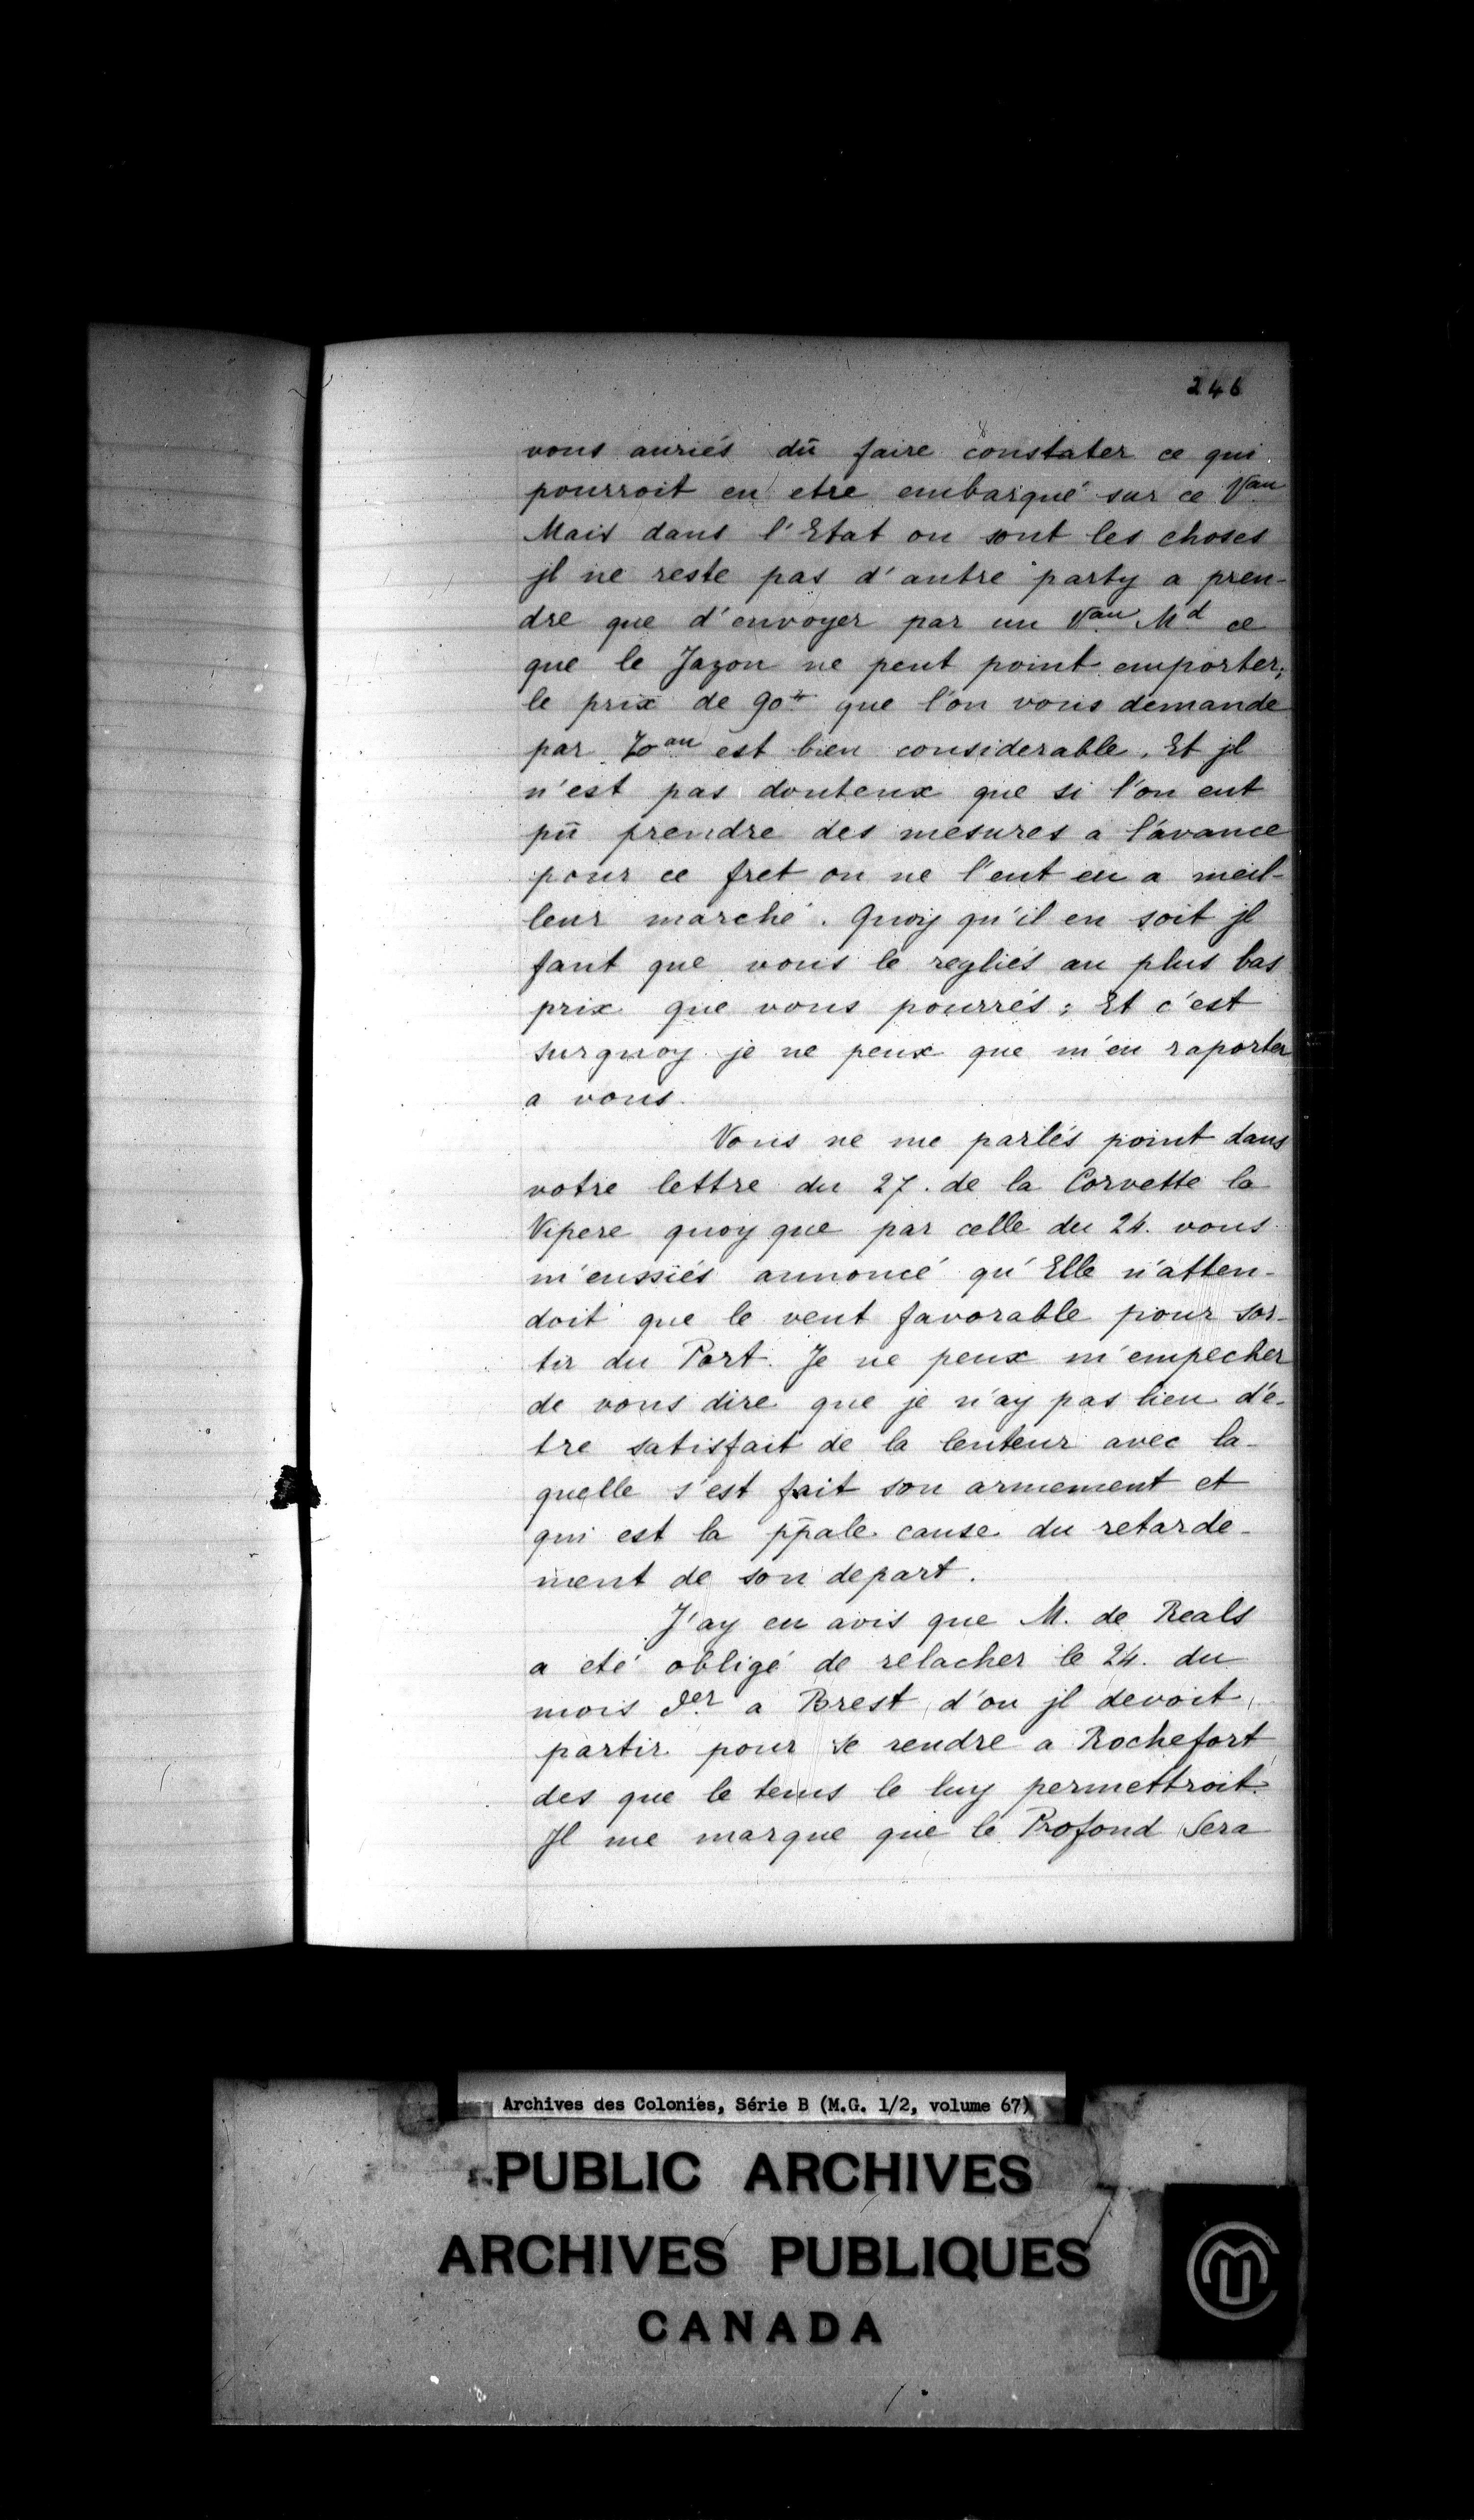 246
vous auriés dû faire constater ce qui
pourroit en etre embarqué sur ce Vau
Mais dans l'Etat ou sont les choses
jl ne reste pas d'autre party a pren-
dre que d'envoyer par un Vau Md ce
que le Jazon ne peut point emporter;
le prix de 90# que l'on vous demande
par Toau est bien considerable. Et jl
n'est pas douteux que si l'on eut
pû prendre des mesures a l'avance
pour ce fret on ne l'eut eu a meil-
leur marché. Quoy qu'il en soit jl
faut que vous le regliés au plus bas
prix que vous pourrés; Et c'est
surquoy je ne peux que m'en raporter
a vous.
Vous ne me parlés point dans
votre lettre du 27. de la Corvette la
Vipere quoy que par celle du 24. vous
m'eussiés annoncé qu'Elle n'atten-
doit que le vent favorable pour sor-
tir du Port. Je ne peux m'empecher
de vous dire que je n'ay pas lieu d'é-
tre satisfait de la lenteur avec la-
quelle s'est fait son armement et
qui est la ppale cause du retarde-
ment de son depart.
J'ay eu avis que M. de Reals
a eté obligé de relacher le 24. du
mois der a Brest d'ou jl devoit
partir pour se rendre a Rochefort
des que le tems le luy permettroit.
Jl me marque que le Profond Sera
Archives des Colonies, Série B (M.G. 1/2, volume 67)
PUBLIC ARCHIVES
ARCHIVES PUBLIQUES
CANADA